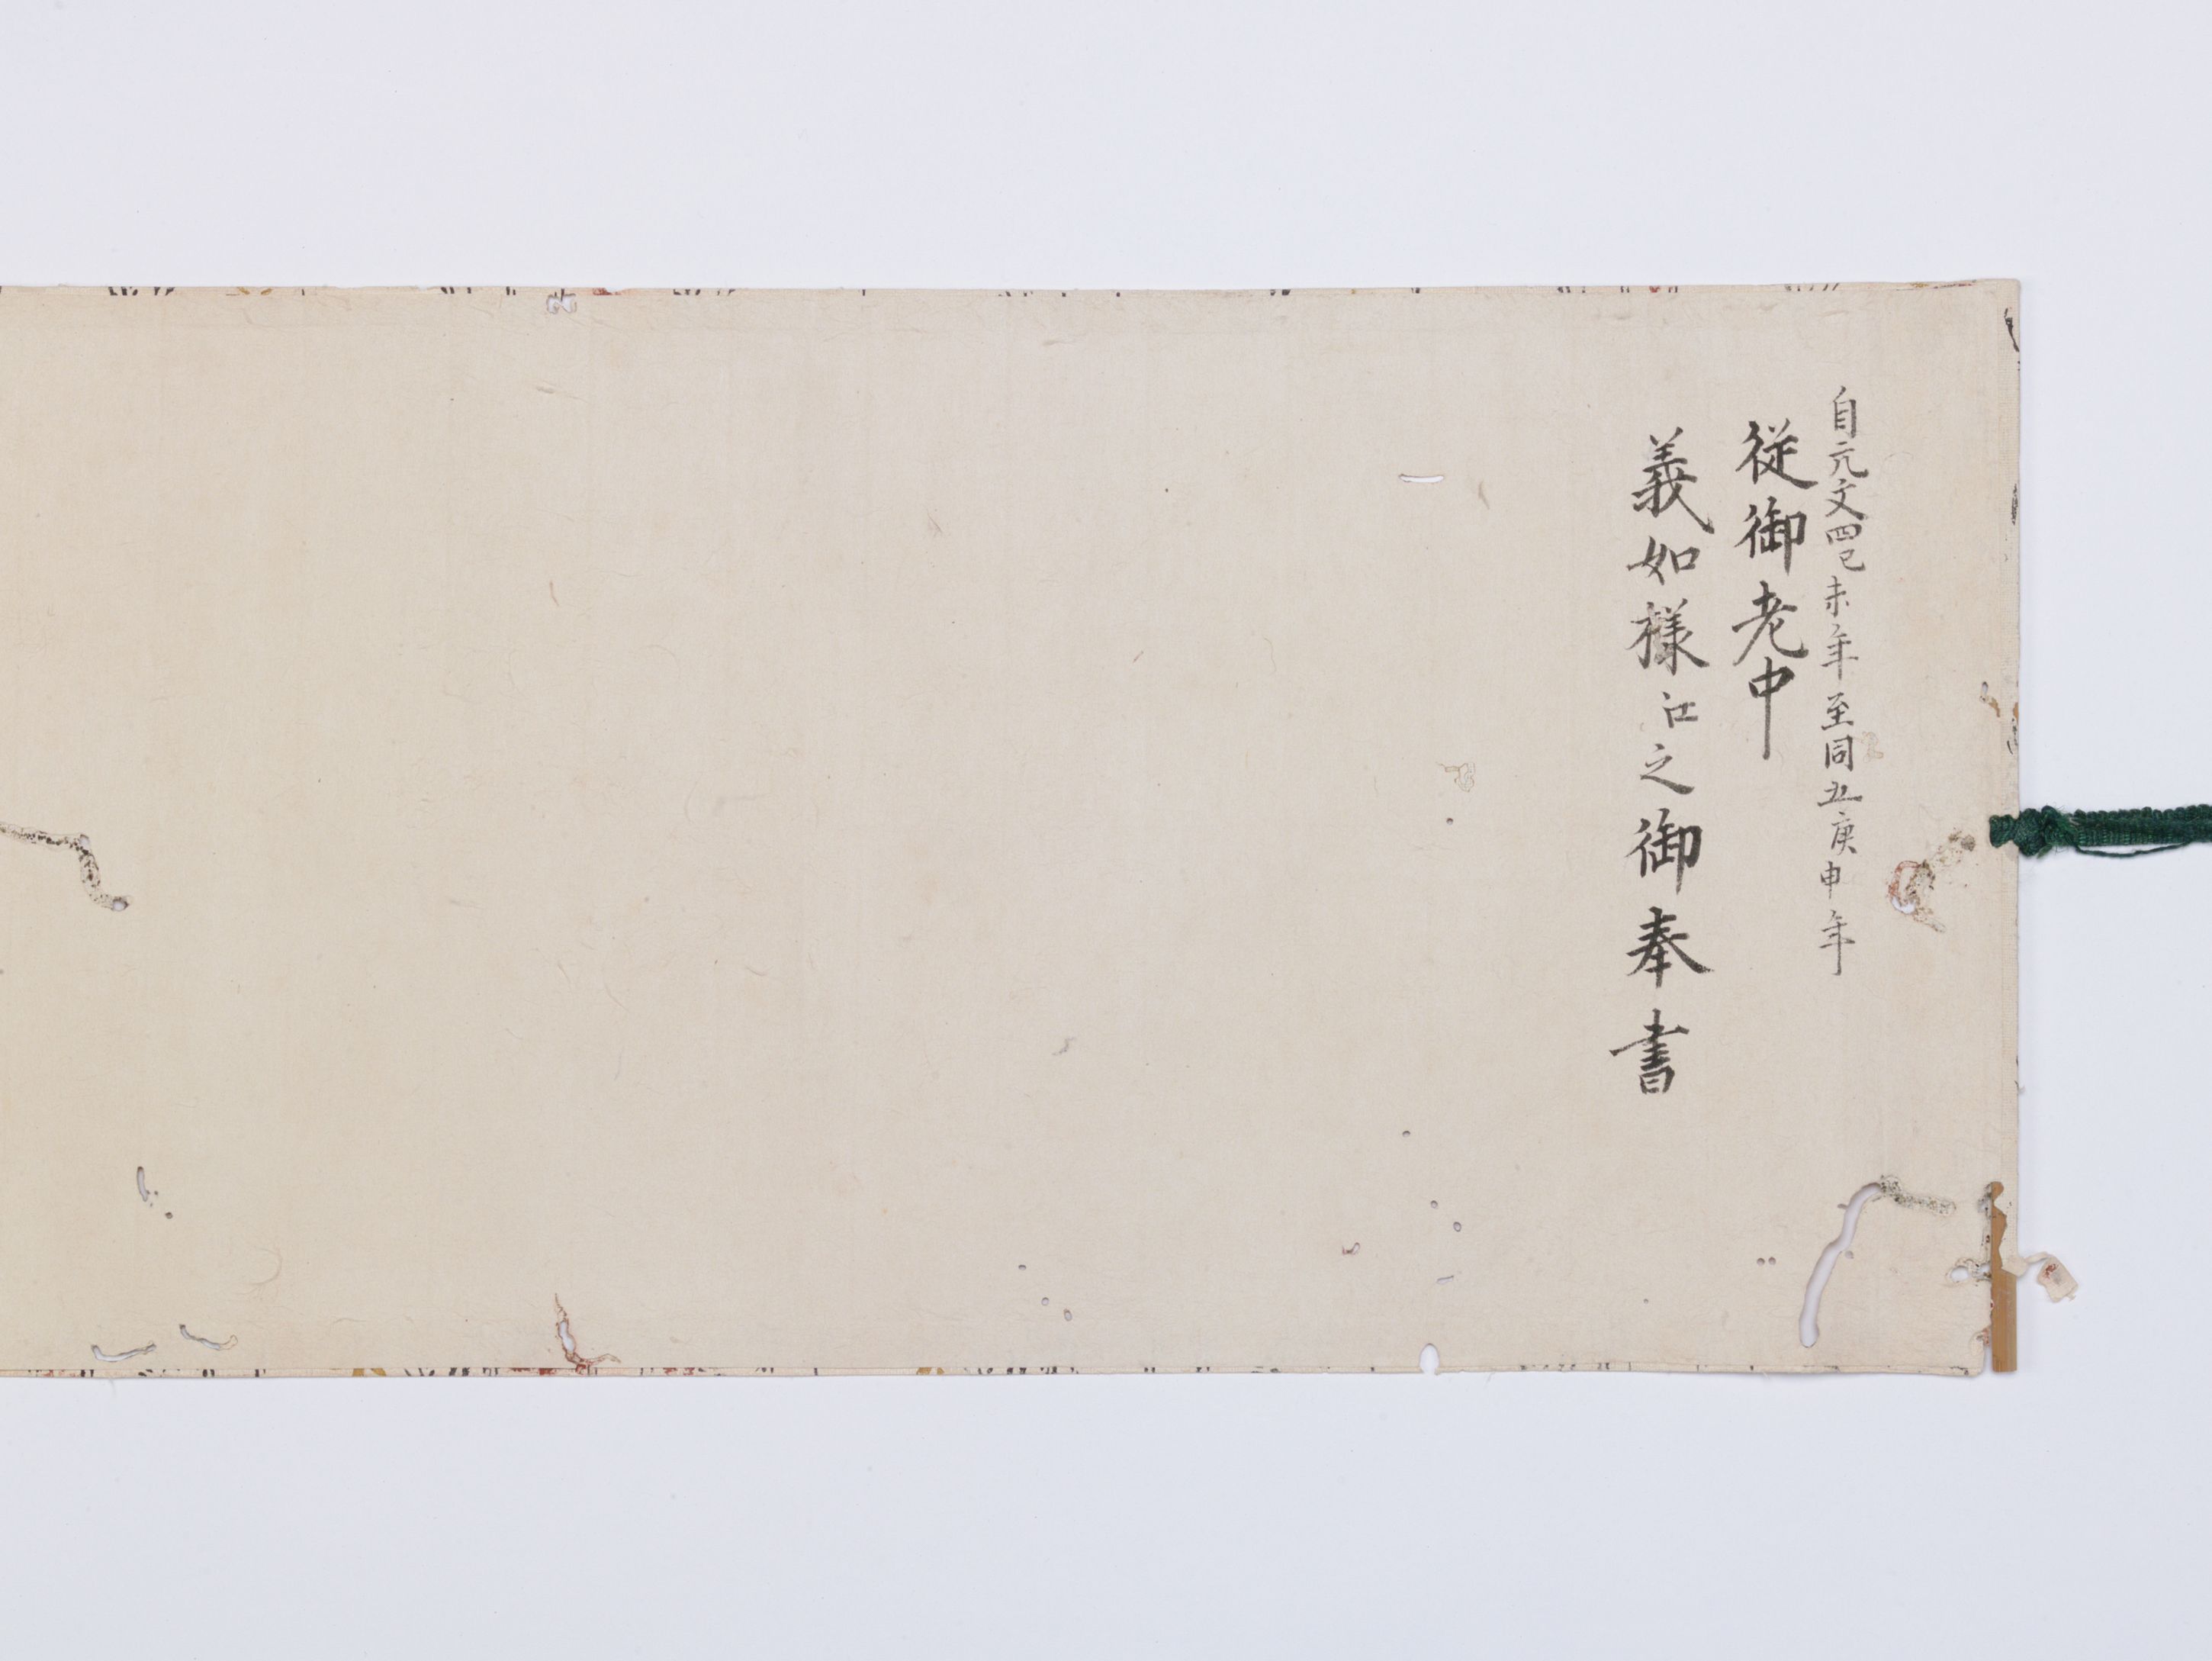 自元文四己未年至同五庚申年
従御老中
義如様江之御奉書